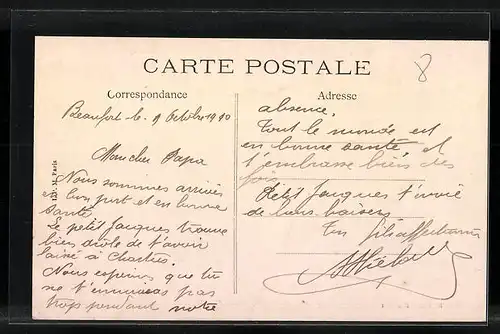 8
CARTE POSTALE
Correspondance
Adresse
Beaufort le 9 Octobre 1910
Mon cher Papa
Nous sommes arrivés
à bon port et en bonne
santé
Le petit Jacques trouve
bien drôle de t'avoir
laissé à Chartres.
Nous espérons que tu
ne t'ennuies pas
trop pendant notre
absence.
Tout le monde est
en bonne santé et
t'embrasse bien des
fois
Petit Jacques t'envoie
de bons baisers
Ton fils affectionné
Paris